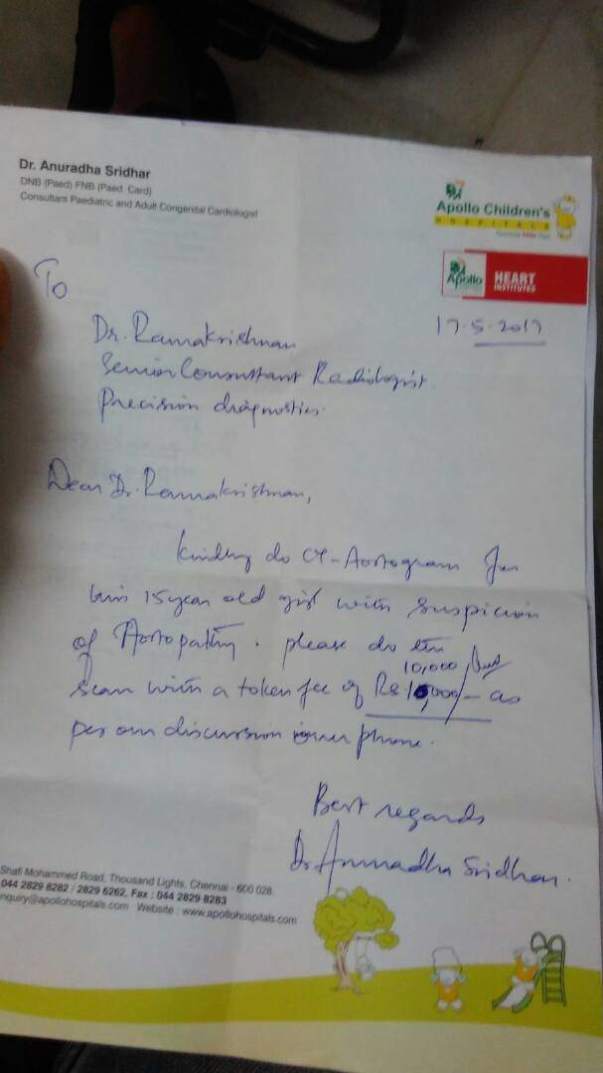 Dr. Anuradha Sridhar
DNB (Paed) FNB (Paed. Card)
Consultant Paediatric and Adult Congenital Cardiologist
Apollo Children's
HOSPITALS
Apollo HEART INSTITUTES
To
17.5.2017
Dr. Ramakrishnan
Senior Consultant Radiologist
Precision diagnostics.
Dear Dr. Ramakrishnan,
Kindly do CT-Aortogram for
this 15 year old girl with suspicion
of Aortopathy. please do the
10,000
scan with a token fee of Rs 10,000/- as
per our discussion over phone.
Best regards
Dr Anuradha Sridhar.
Shafi Mohammed Road, Thousand Lights, Chennai - 600 028.
044 2829 8282 / 2829 6262, Fax : 044 2829 8283
nquiry@apollohospitals.com Website : www.apollohospitals.com